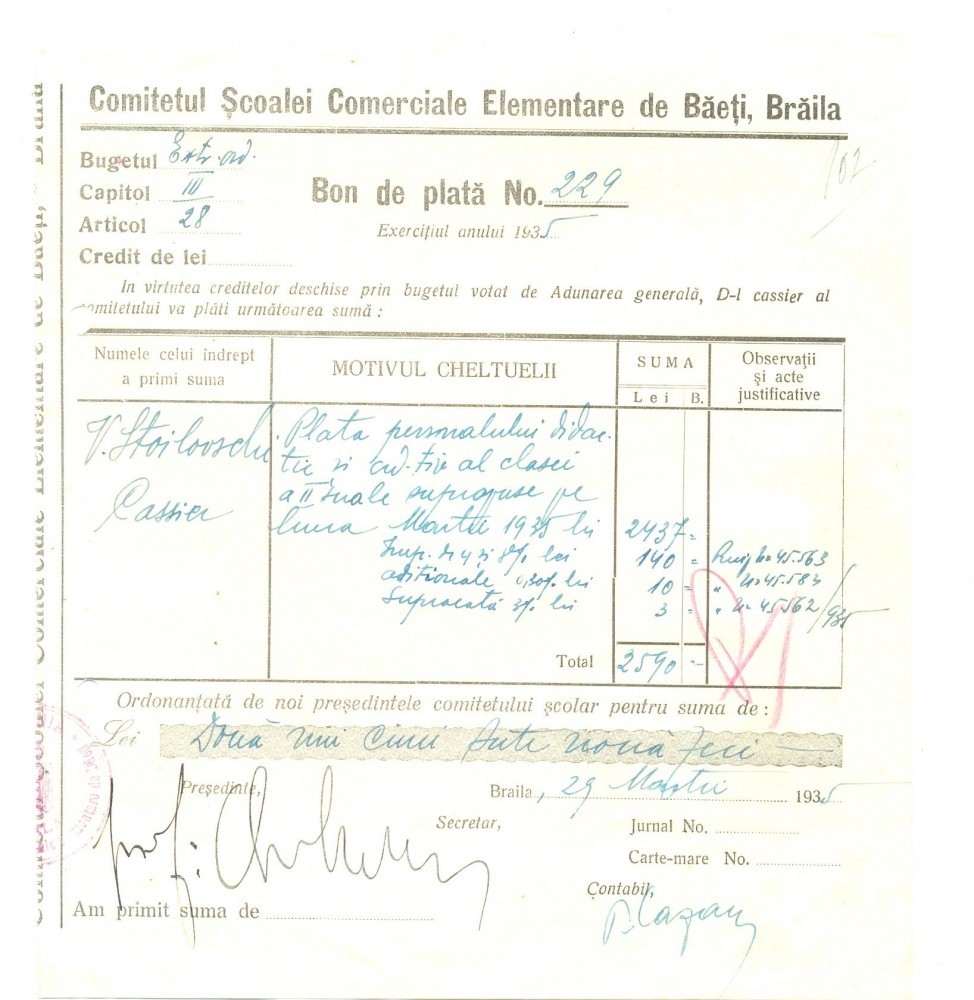 Comitetul Școalei Comerciale Elementare de Băeți, Brăila
102
Bugetul Extr. ord.
Capitol III
Articol 28
Credit de lei
Bon de plată No. 229
Exercițiul anului 1935
In virtutea creditelor deschise prin bugetul votat de Adunarea generală, D-l cassier al
comitetului va plăti următoarea sumă :
Numele celui îndrept a primi suma
MOTIVUL CHELTUELII
SUMA
Lei B.
Observații și acte justificative
V. Stoilovschi
Cassier
Plata personalului didac-
tic și ad-tiv al clasei
a II
luna Martie 1935 lei 2437 =
Imp. de 4 și 8% lei 140 = No 45.563
adiționale 0,30% lei 10 = " No 45.583
Supracotă 3% lei 3 = " No 45562 /935
Total 2590 =
Ordonanțată de noi președintele comitetului școlar pentru suma de :
Lei Două mii cinci sute nouă zeci
Președinte,
Braila, 29 Martie 1935
Secretar,
Jurnal No.
Carte-mare No.
Contabil,
Am primit suma de